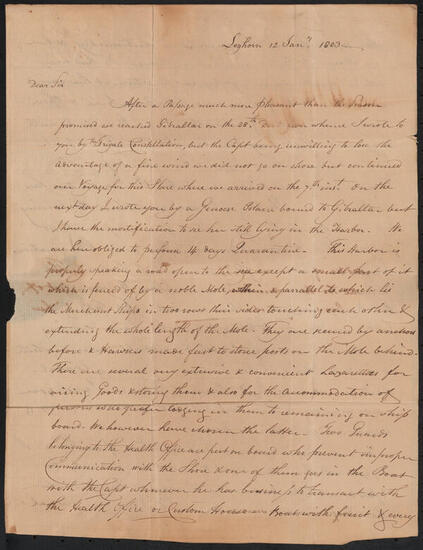 Leghorn 12 Jany. 1803
Dear Sir
After a Passage much more pleasant than the Season
promised we reached Gibraltar on the 28th from whence I wrote to
you by Frigate Constellation, but the Capt being unwilling to lose the
advantage of a fine wind we did not go on shore but continued
our Voyage for this Place where we arrived on the 7th inst. On the
next day I wrote you by a Genoese Polacca bound to Gibraltar but
I have the mortification to see her still lying in the Harbor. We
are here obliged to perform 14 days Quarantine. This Harbor is
properly speaking a road open to the sea except a small part of it
which is fenced of by a noble Mole within & parrallel to which lie
the Merchant Ships in two rows their sides touching each other &
extending the whole length of the Mole. They are secured by anchors
before & Hawsers made fast to stone posts on the Mole behind.
There are several very extensive & convenient Lazarettos for
airing Goods & storing them & also for the accommodation of
persons who prefer lodging in them to remaining on ship
board. We however have chosen the latter. Two Guards
belonging to the Health Office are put on board who prevent improper
Communication with the Shore & one of them goes in the Boat
with the Capt whenever he has business to transact with
the Health Office or Custom House. Boats with fruit & every